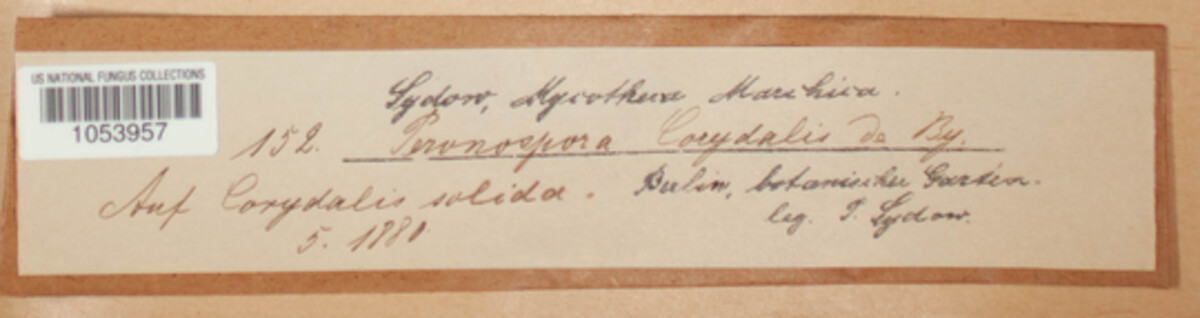 US NATIONAL FUNGUS COLLECTIONS
1053957
Sydow, Mycotheca Marchica.
152. Peronospora Corydalis de By.
Auf Corydalis solida. Berlin, botanischer Garten.
leg. P. Sydow.
5. 1880